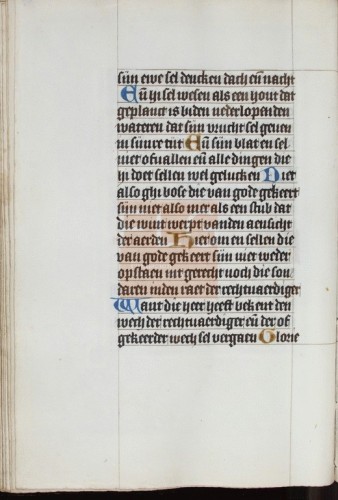 sijn ewe sel dencken dach eñ nacht
Eñ hi sel wesen als een hout dat
geplant is biden nederlopenden
wateren dat sijn vrucht sel geuen
in sijnre tijt Eñ sijn blat en sel
niet ofuallen eñ alle dingen die
hi doet sellen wel gelucken Niet
also ghi bose die van gode gekeert
sijn niet also mer als een stub dat
die wint werpt vanden aensicht
der aerden Hierom en sellen die
van gode gekeert sijn niet weder
opstaen int gerecht noch die son
daren inden raet der rechtuaerdiger
Want die heer heeft bekent den
wech der rechtuaerdiger eñ der of
gekeerder wech sel vergaen Glorie